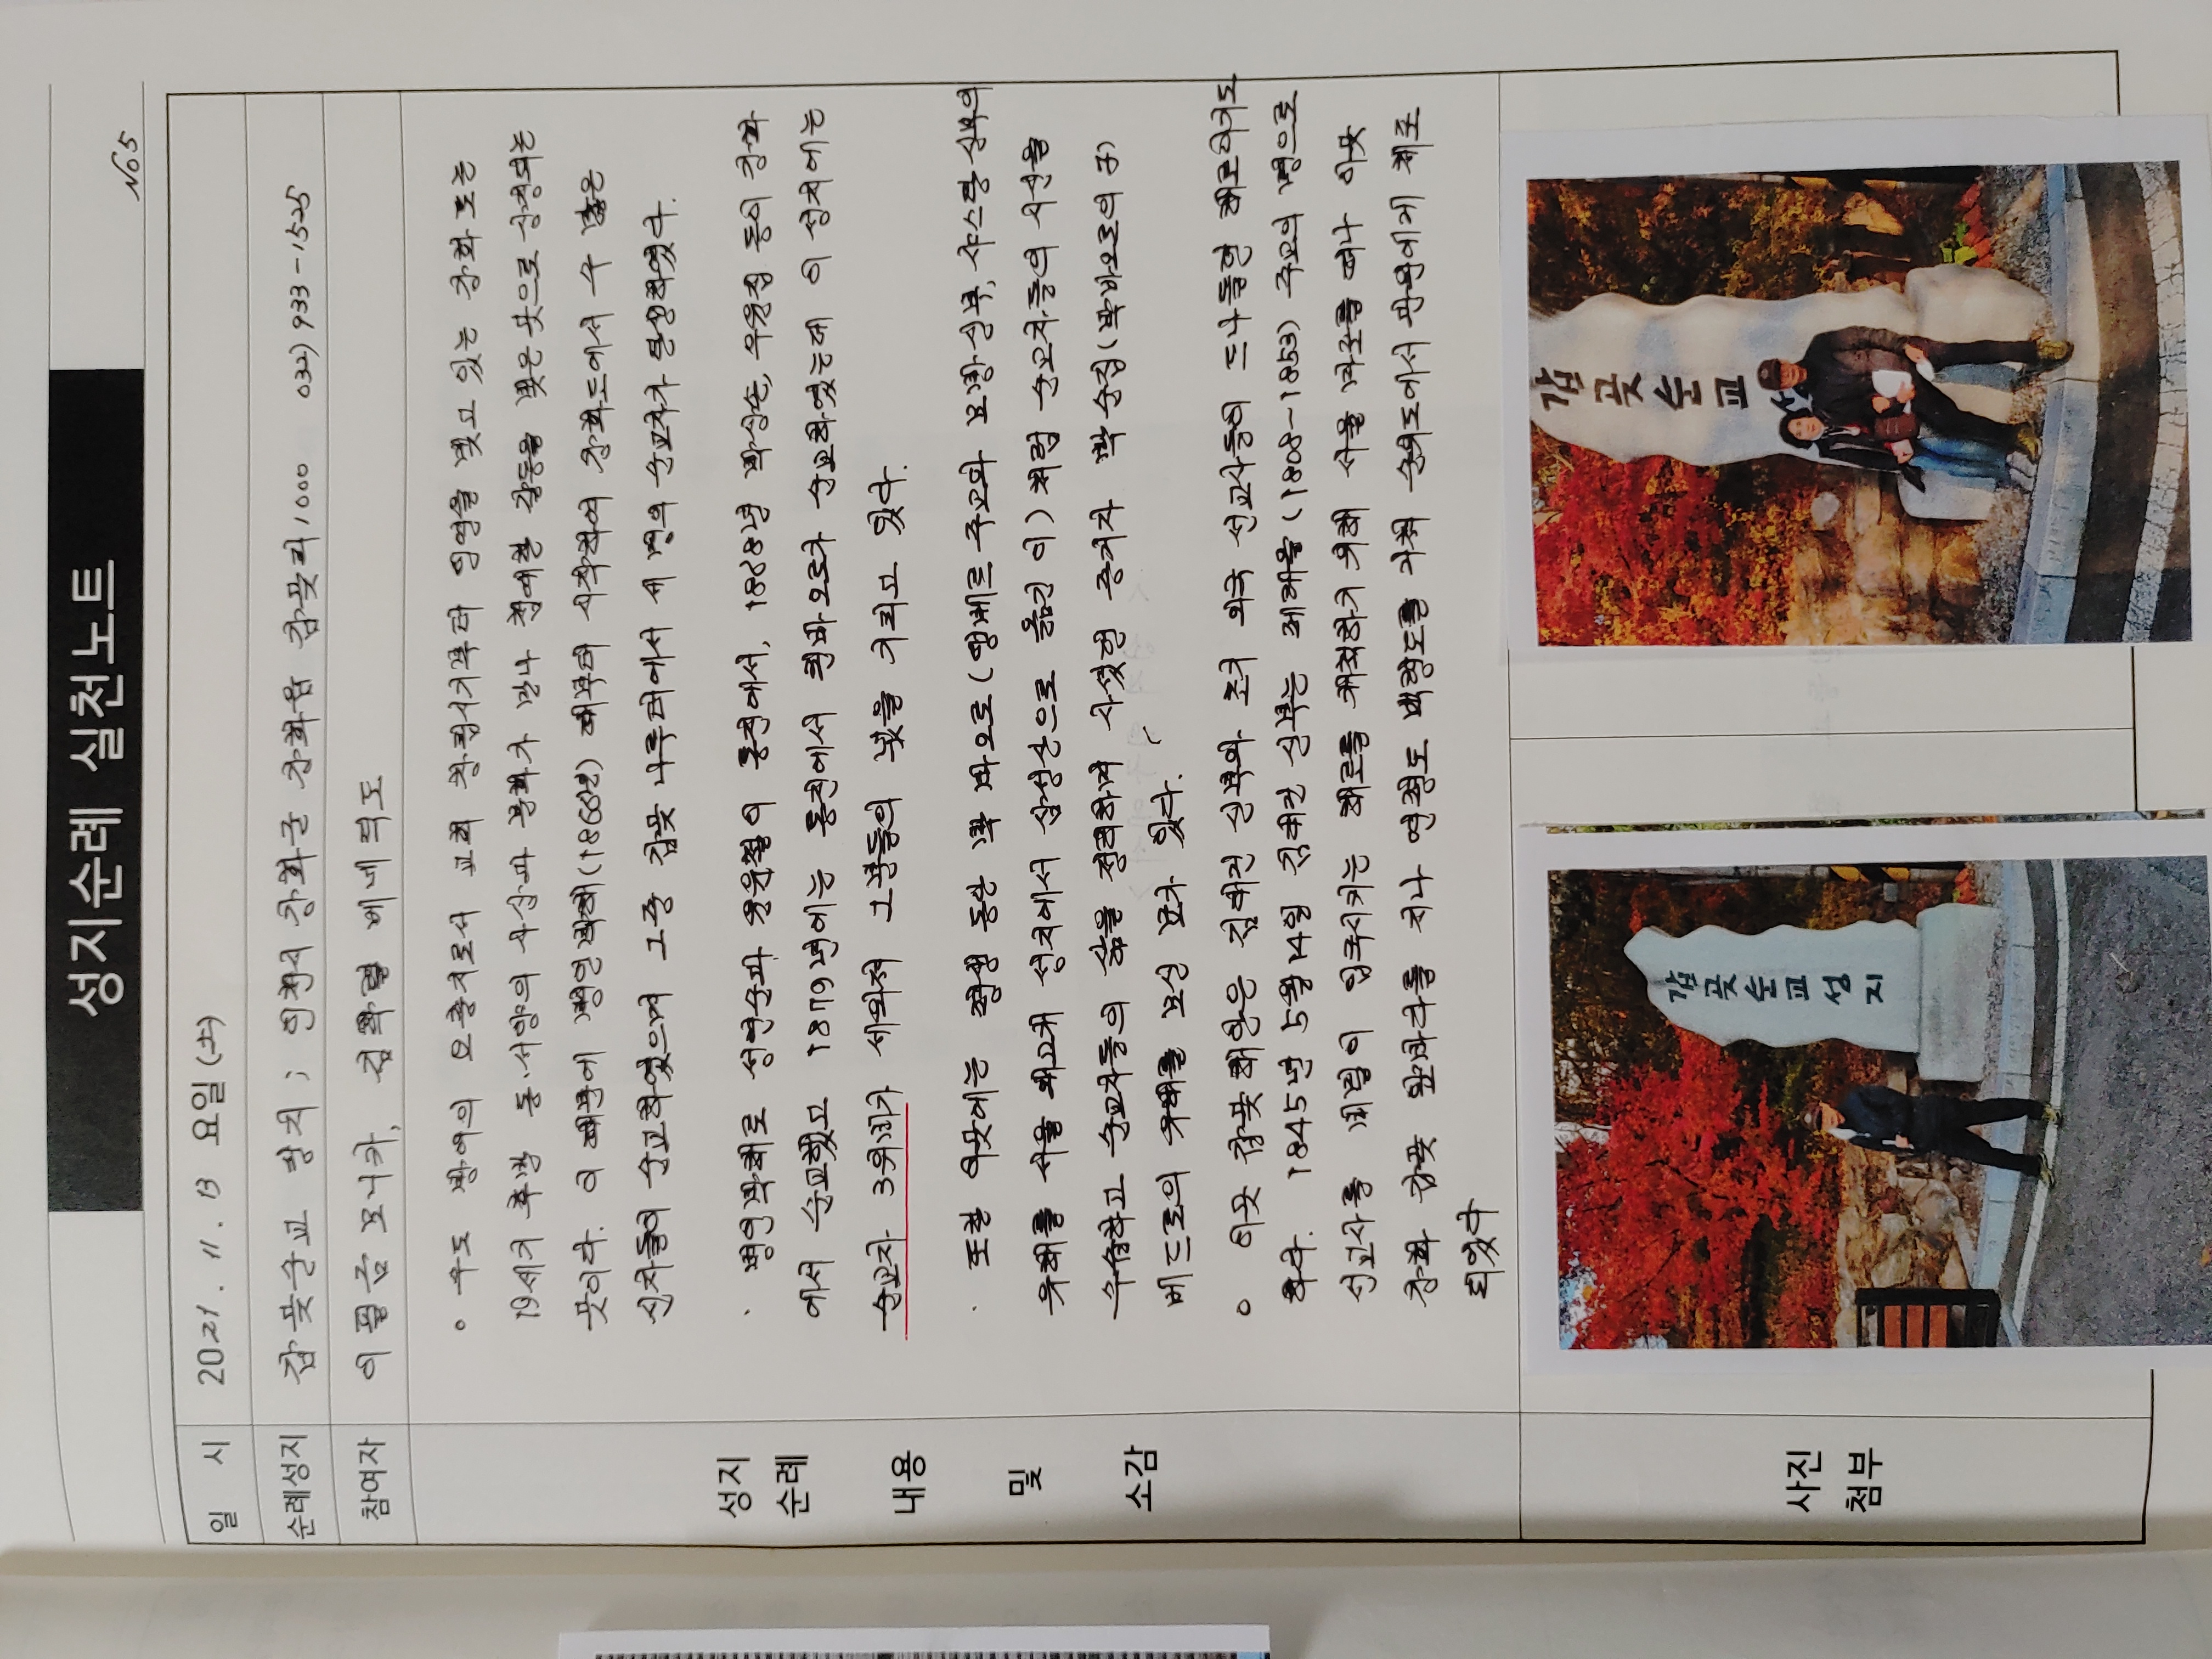 성지순례 실천노트
No 5
일 시 2021. 11. 13 요일(土)
순례성지 갑곶순교 성지; 인천시 강화군 강화읍 갑곶리 1000 032) 933-1525
참여자 이필금 모니카, 김학렬 베네딕도
성지
순례
내용
및
소감
◦ 수도 방어의 요충지로서 교회 창립시기부터 인연을 맺고 있는 강화도는
19세기 후반 동·서양의 사상과 문화가 만나 첨예한 갈등을 빚은 곳으로 상징되는
곳이다. 이 때문에 병인박해(1866년) 때부터 시작하여 강화도에서 수 많은
신자들이 순교하였으며 그중 갑곶 나루터에서 세 명의 순교자가 탄생하였다.
· 병인박해로 성연순과 원윤철이 통진에서, 1868년 박상손, 우윤집 등이 강화
에서 순교했고 1879년에는 통진에서 권바오로가 순교하였는데 이 성지에는
순교자 3위비가 세워져 그분들의 넋을 기리고 있다.
· 또한 이곳에는 평생 동안 박 바오로(앵베르 주교와 모방 신부, 샤스탕 신부의
유해를 서울 노고개 성지에서 삼성산으로 옮긴 이)처럼 순교자들의 시신을
수습하고 순교자들의 삶을 정리하며 사셨던 증거자 박 순집(박바오로의 子)
베드로의 유해를 모신 묘가 있다.
◦ 이곳 갑곶 해안은 김대건 신부와 초기 외국 선교사들이 드나들던 해로이기도
하다. 1845년 5월 14일 김대건 신부는 페레올(1808-1853) 주교의 명으로
선교사를 비밀이 입국시키는 해로를 개척하기 위해 서울 마포를 떠나 이곳
강화 갑곶 앞바다를 지나 연평도 백령도를 거쳐 순위도에서 관원에게 체포
되었다
사진
첨부
갑곶순교성지
갑곶순교성